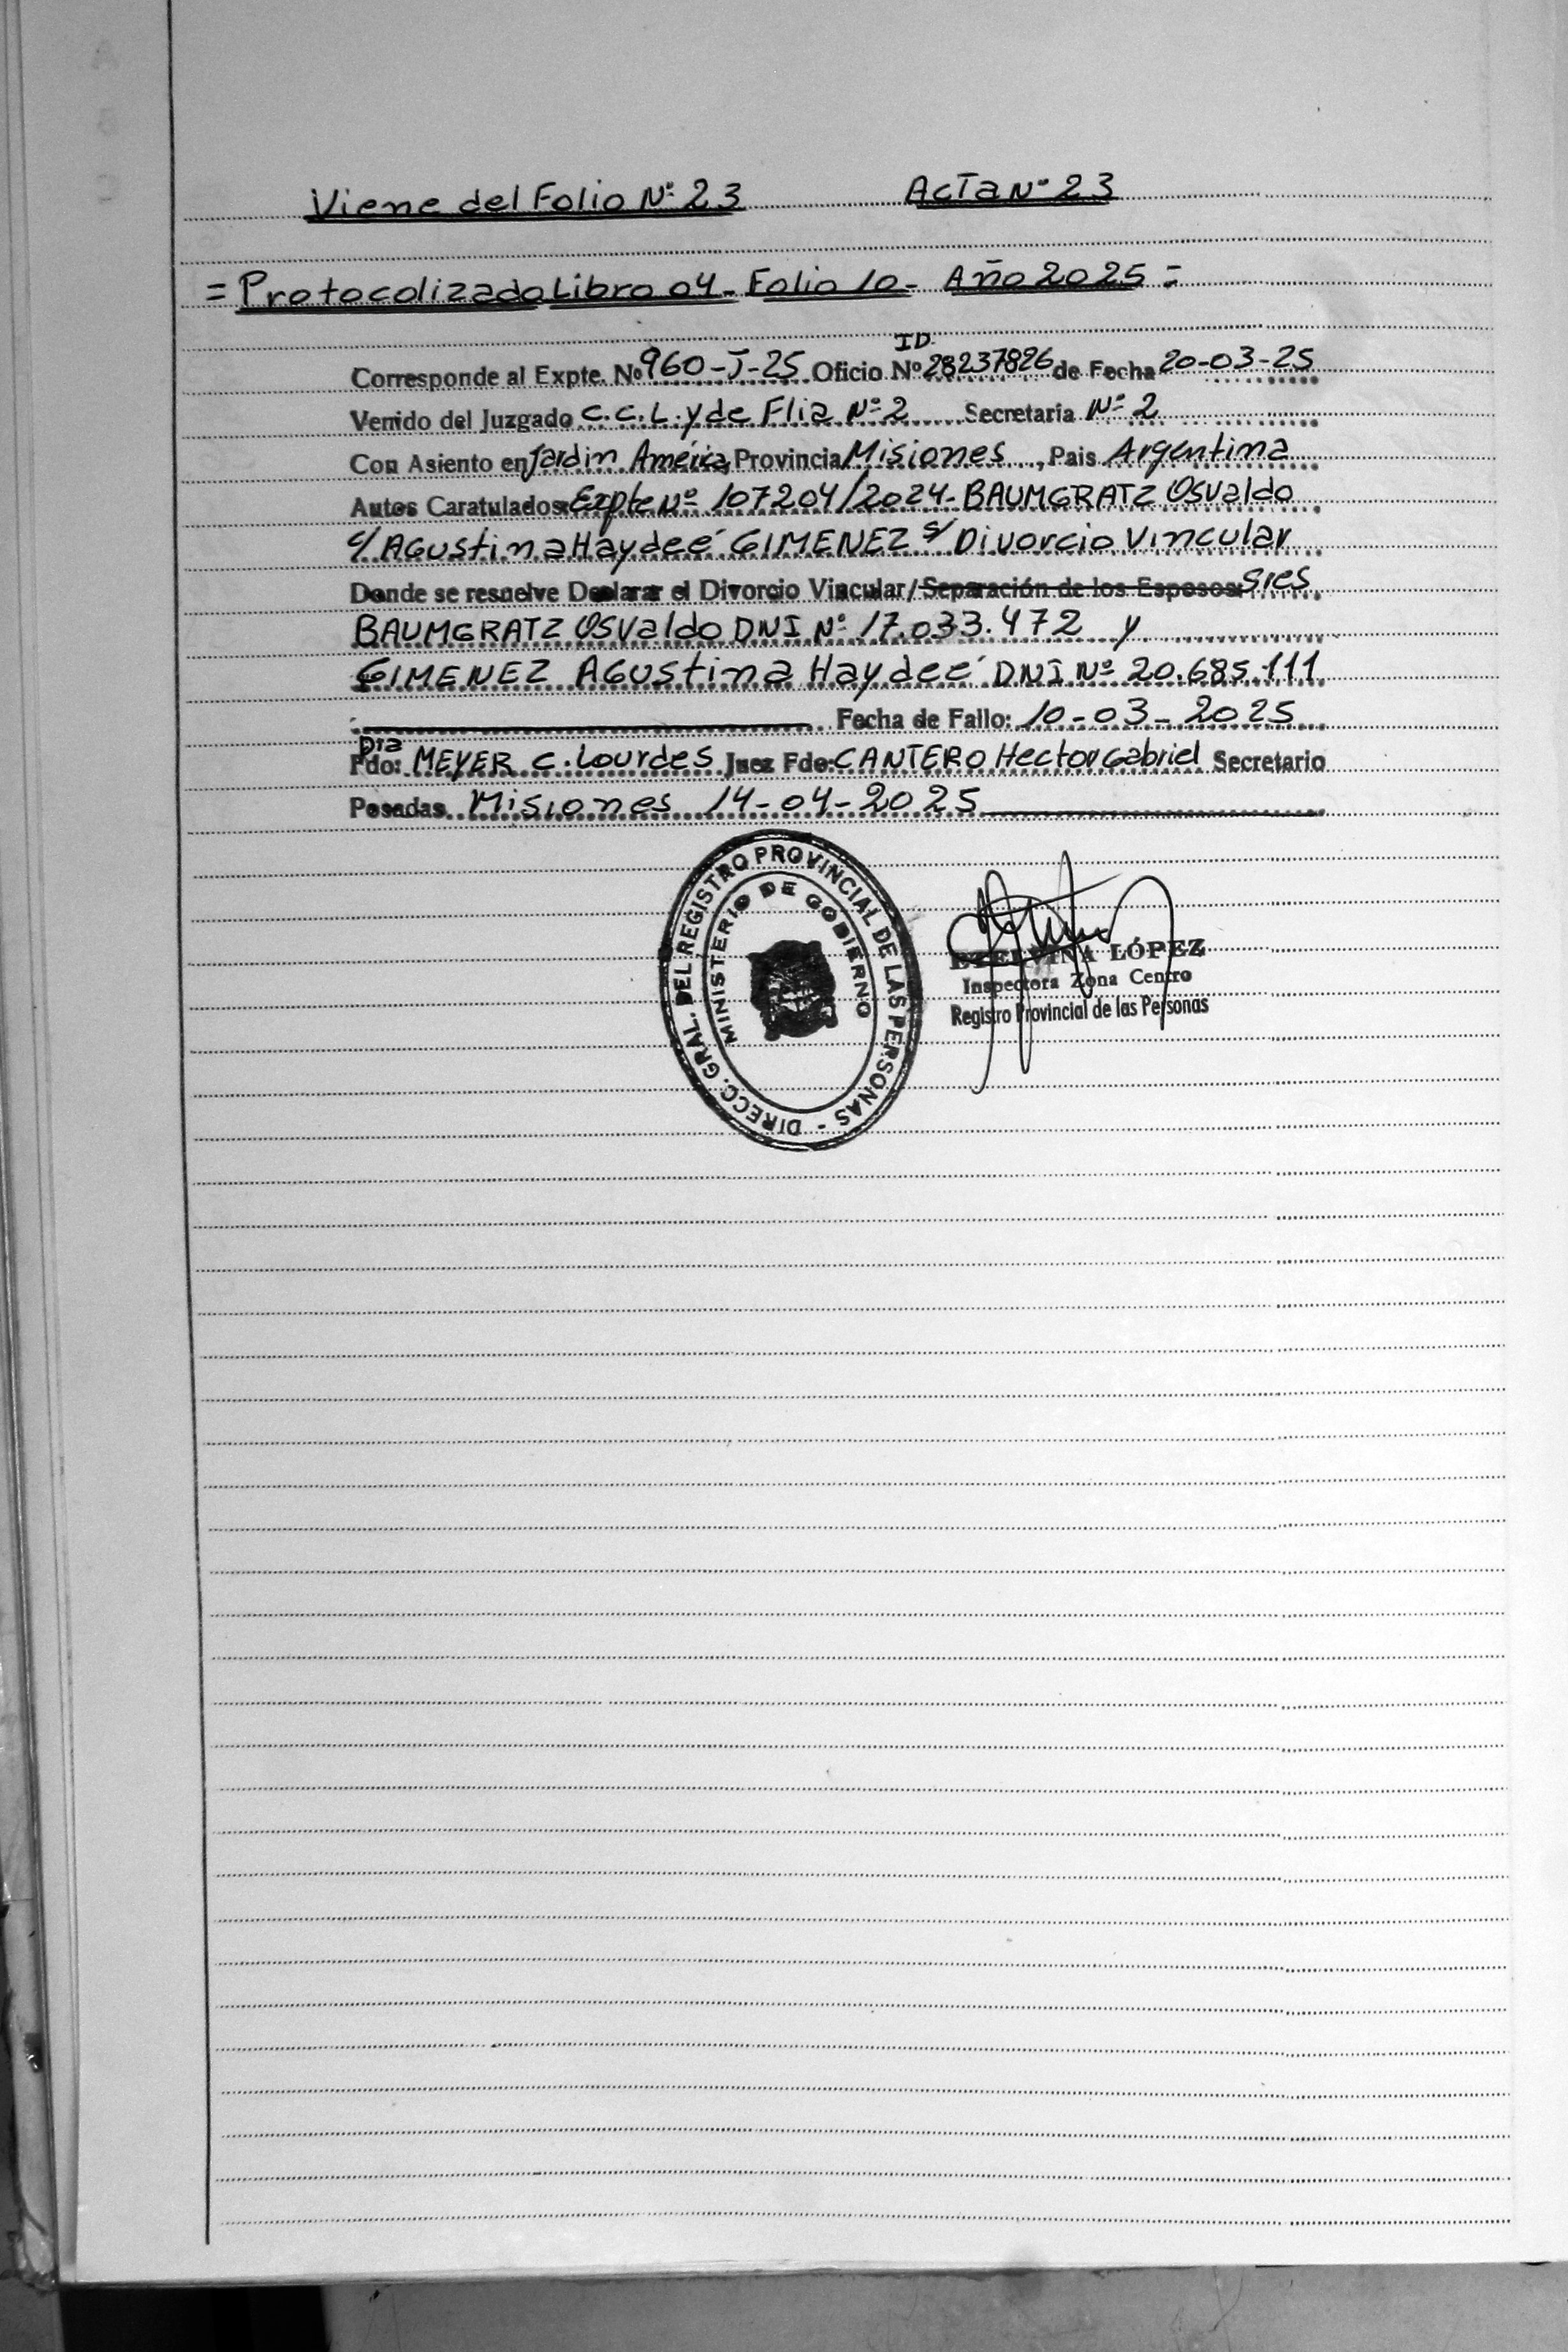 Viene del Folio Nº 23 Acta Nº 23
= Protocolizado Libro 04 - Folio 10 - Año 2025 =
ID.
Corresponde al Expte. Nº 960-J-25 Oficio Nº 28237826 de Fecha 20-03-25
Venido del Juzgado C.C.L. y de Flia Nº 2 Secretaria Nº 2
Con Asiento en Jardin América, Provincia Misiones, Pais Argentina
Autos Caratulados: Expte Nº 107204/2024 - BAUMGRATZ Osvaldo
c/ Agustina Haydeé GIMENEZ s/ Divorcio Vincular
Donde se resuelve Declarar el Divorcio Vincular/Separación de los Esposos: sres
BAUMGRATZ Osvaldo DNI Nº 17.033.472 y
GIMENEZ Agustina Haydeé DNI Nº 20.685.111
Fecha de Fallo: 10-03-2025
Dra
Fdo: MEYER C. Lourdes Juez Fdo: CANTERO Hector Gabriel Secretario
Posadas Misiones 14-04-2025
DIRECC. GRAL. DEL REGISTRO PROVINCIAL DE LAS PERSONAS -
MINISTERIO DE GOBIERNO
ETELVINA LÓPEZ
Inspectora Zona Centro
Registro Provincial de las Personas